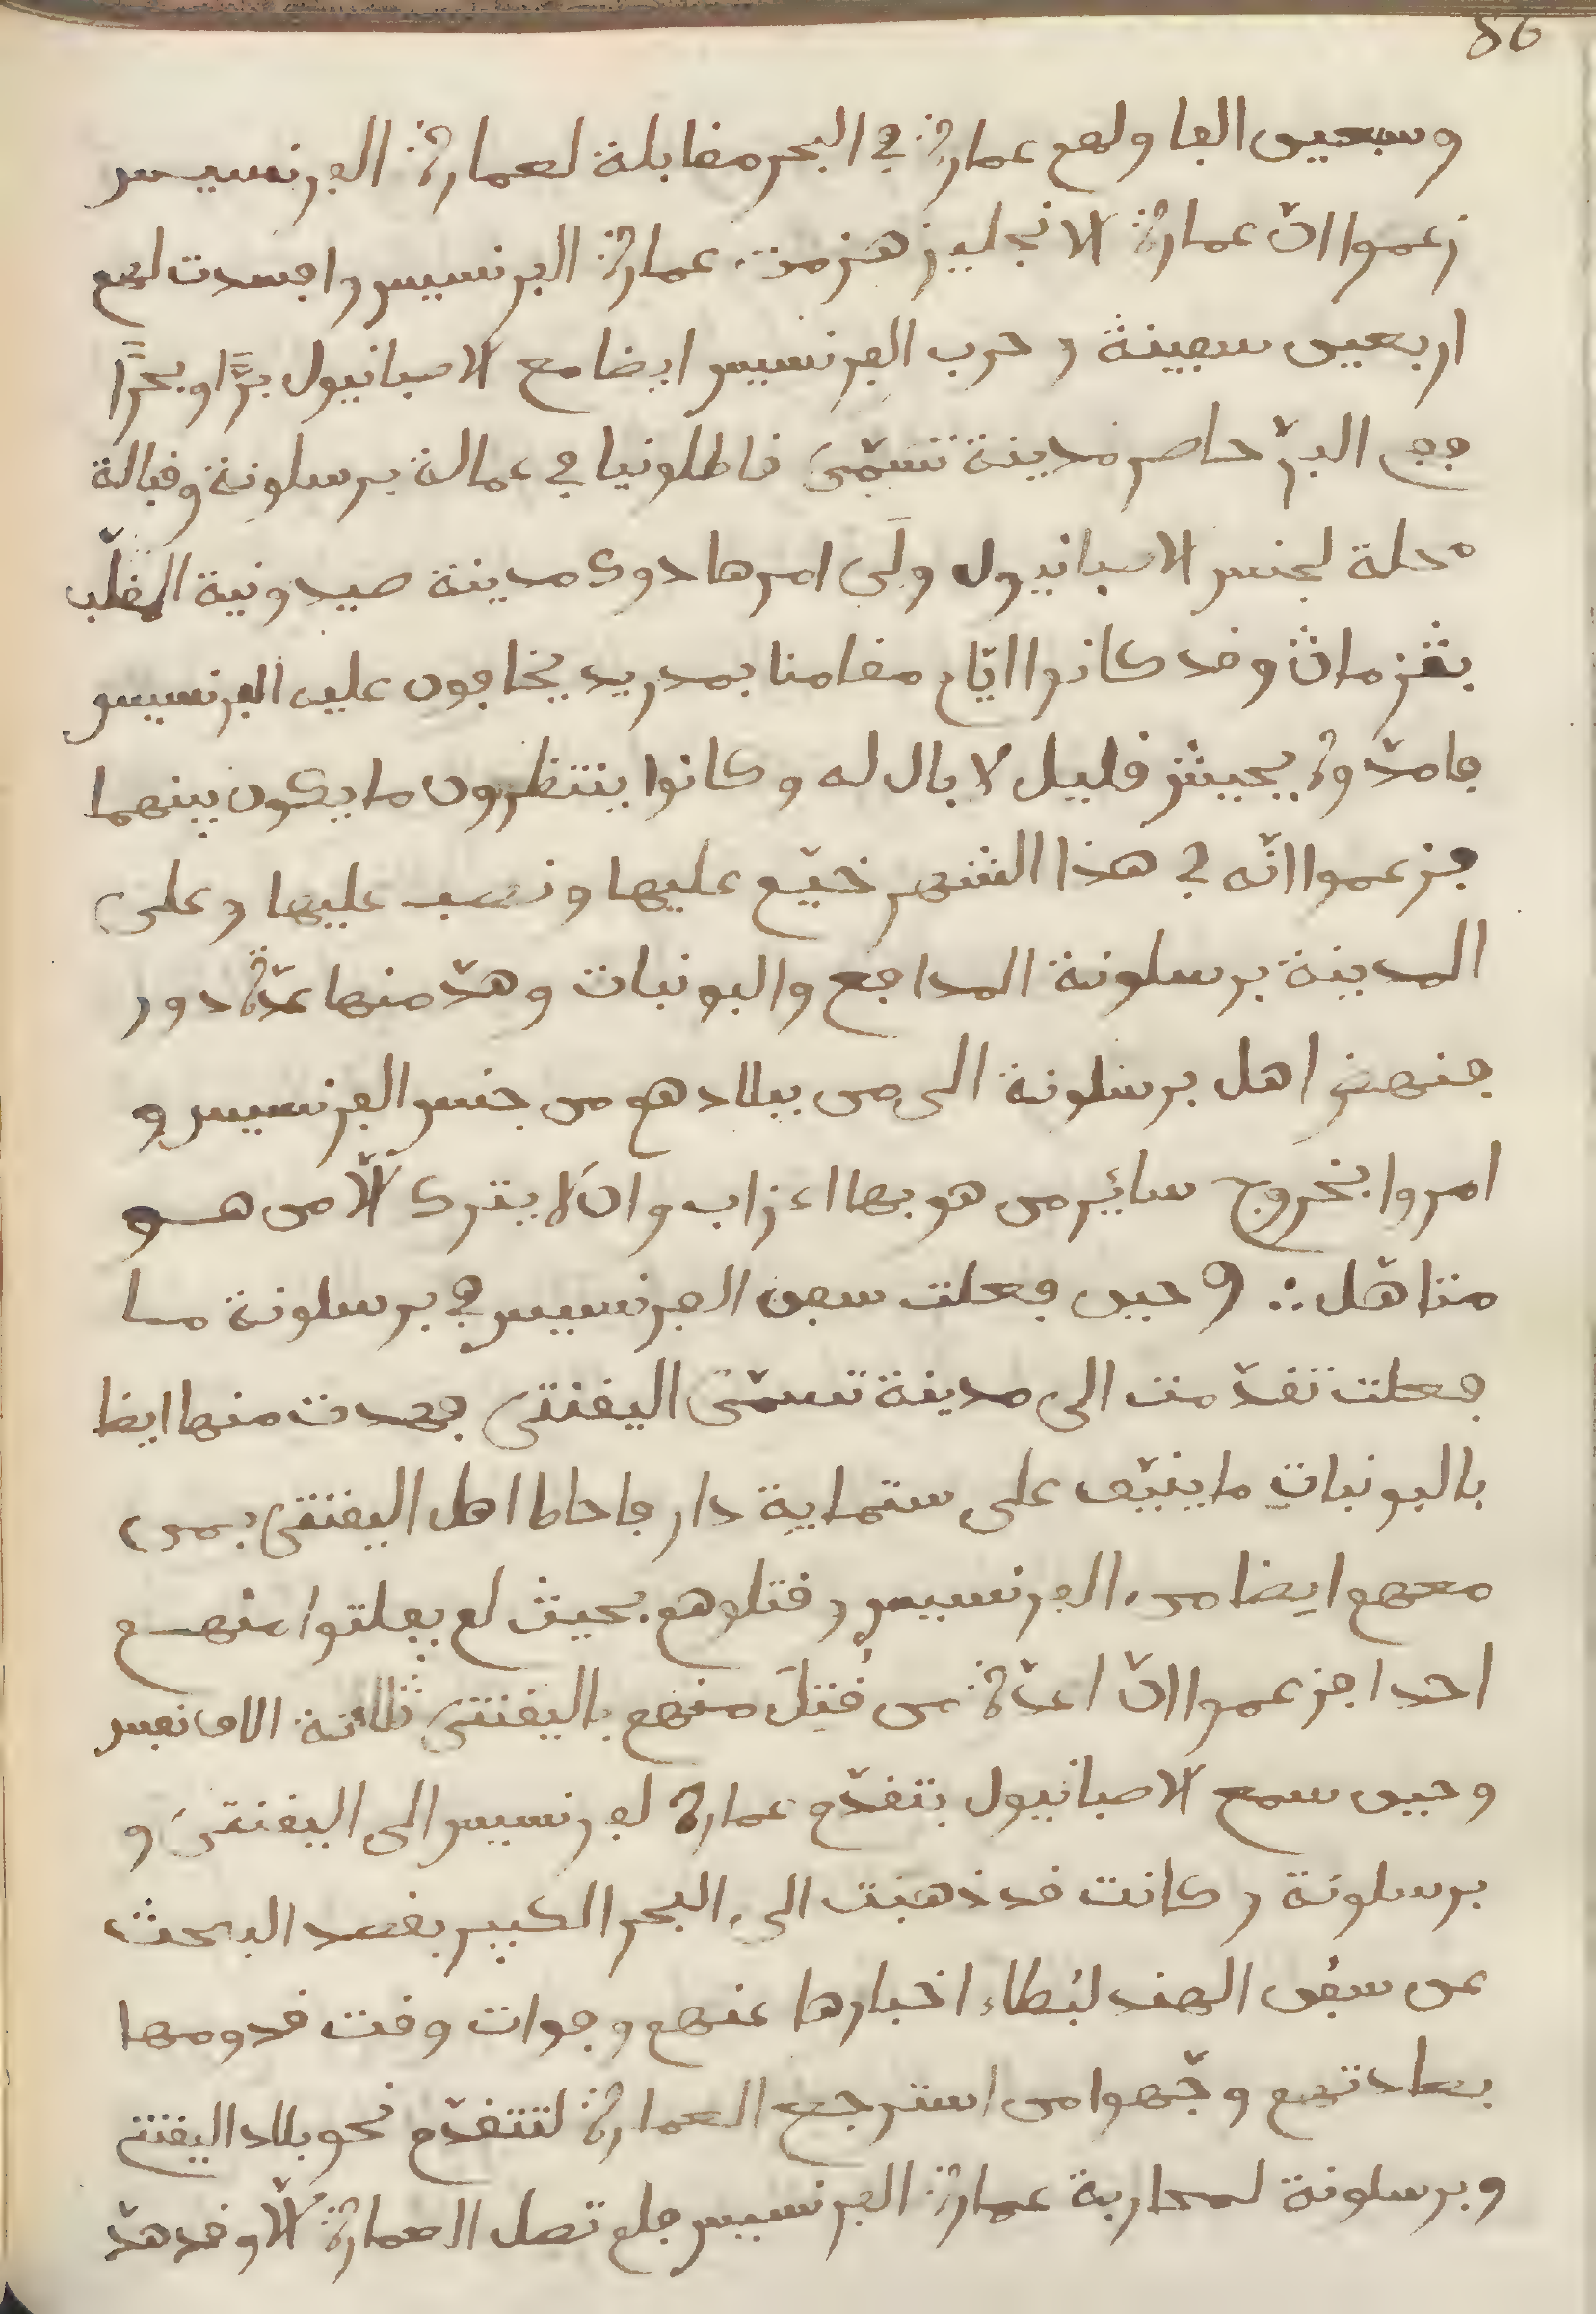 86
وسبعين الفا ولهم عمارة في البحر مقابلة لعمارة الفرنسيس
زعموا انّ عمارة الانجليز هزمت عمارة الفرنسيس وافسدت لهم
اربعين سفينة وحرب الفرنسيس ايضا مع الاصبانيول برًّا وبحرًا
ففي البرّ حاصر مدينة تسمّى قاطلونيا في عمالة برسلونة وقبالة
محلة لجنس الاصبانيول ولّى امرها دوك مدينة صيدونية الملقّب
بڨزمان وقد كانوا ايّام مقامنا بمدريد يخافون عليه الفرنسيس
فامدّوه بجيش قليل لا بال له وكانوا ينتظرون ما يكون بينهما
فزعموا انّه في هذا الشهر خيّم عليها ونصب عليها وعلى
المدينة برسلونة المدافع والبونبات وهدّ منها عدّة دور
فنهض اهل برسلونة الى من ببلادهم من جنس الفرنسيس و
امروا بخروج سائر من هو بها اعزاب وان لا يترك الّا من هو
متاهّل ∴ وحين فعلت سفن الفرنسيس في برسلونة ما
فعلت تقدّمت الى مدينة تسمّى اليقنتى فهدت منها ايضا
بالبونبات ما ينيّف على ستماية دار فاحاط اهل اليقنتى بمن
معهم ايضا من الفرنسيس وقتلوهم بحيث لم يفلتوا منهم
احدا فزعموا انّ اعدّة من قُتِلَ منهم باليقنتى ثلاثة الاف نفس
وحين سمع الاصبانيول بتقدّم عمارة لفرنسيس الى اليقنتى و
برسلونة وكانت قد ذهبت الى البحر الكبير بقصد البحث
عن سفن الهند لبُطاء اخبارها عنهم وفوات وقت قدومها
بعادتهم وجّهوا من استرجع العمارة لتتقدّم نحو بلاد اليقنتى
وبرسلونة لمحاربة عمارة الفرنسيس فلم تصل العمارة الّا وقد هدّ